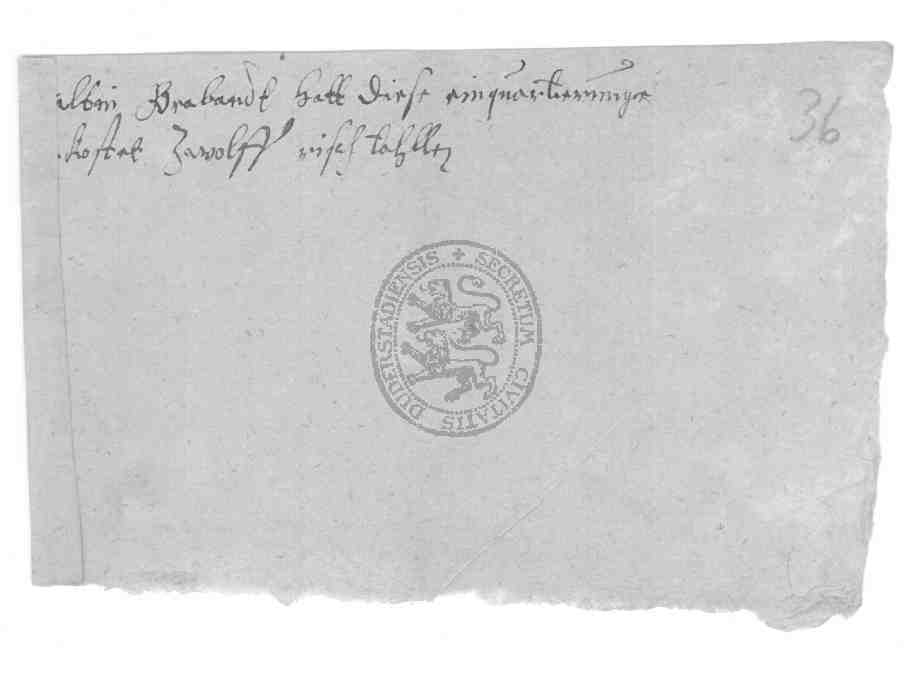 albin Brabandt hatt diese einquartierunge
kostet Zwolff risch tahller
36
SECRETUM CIVITATIS DUDERSTADIENSIS